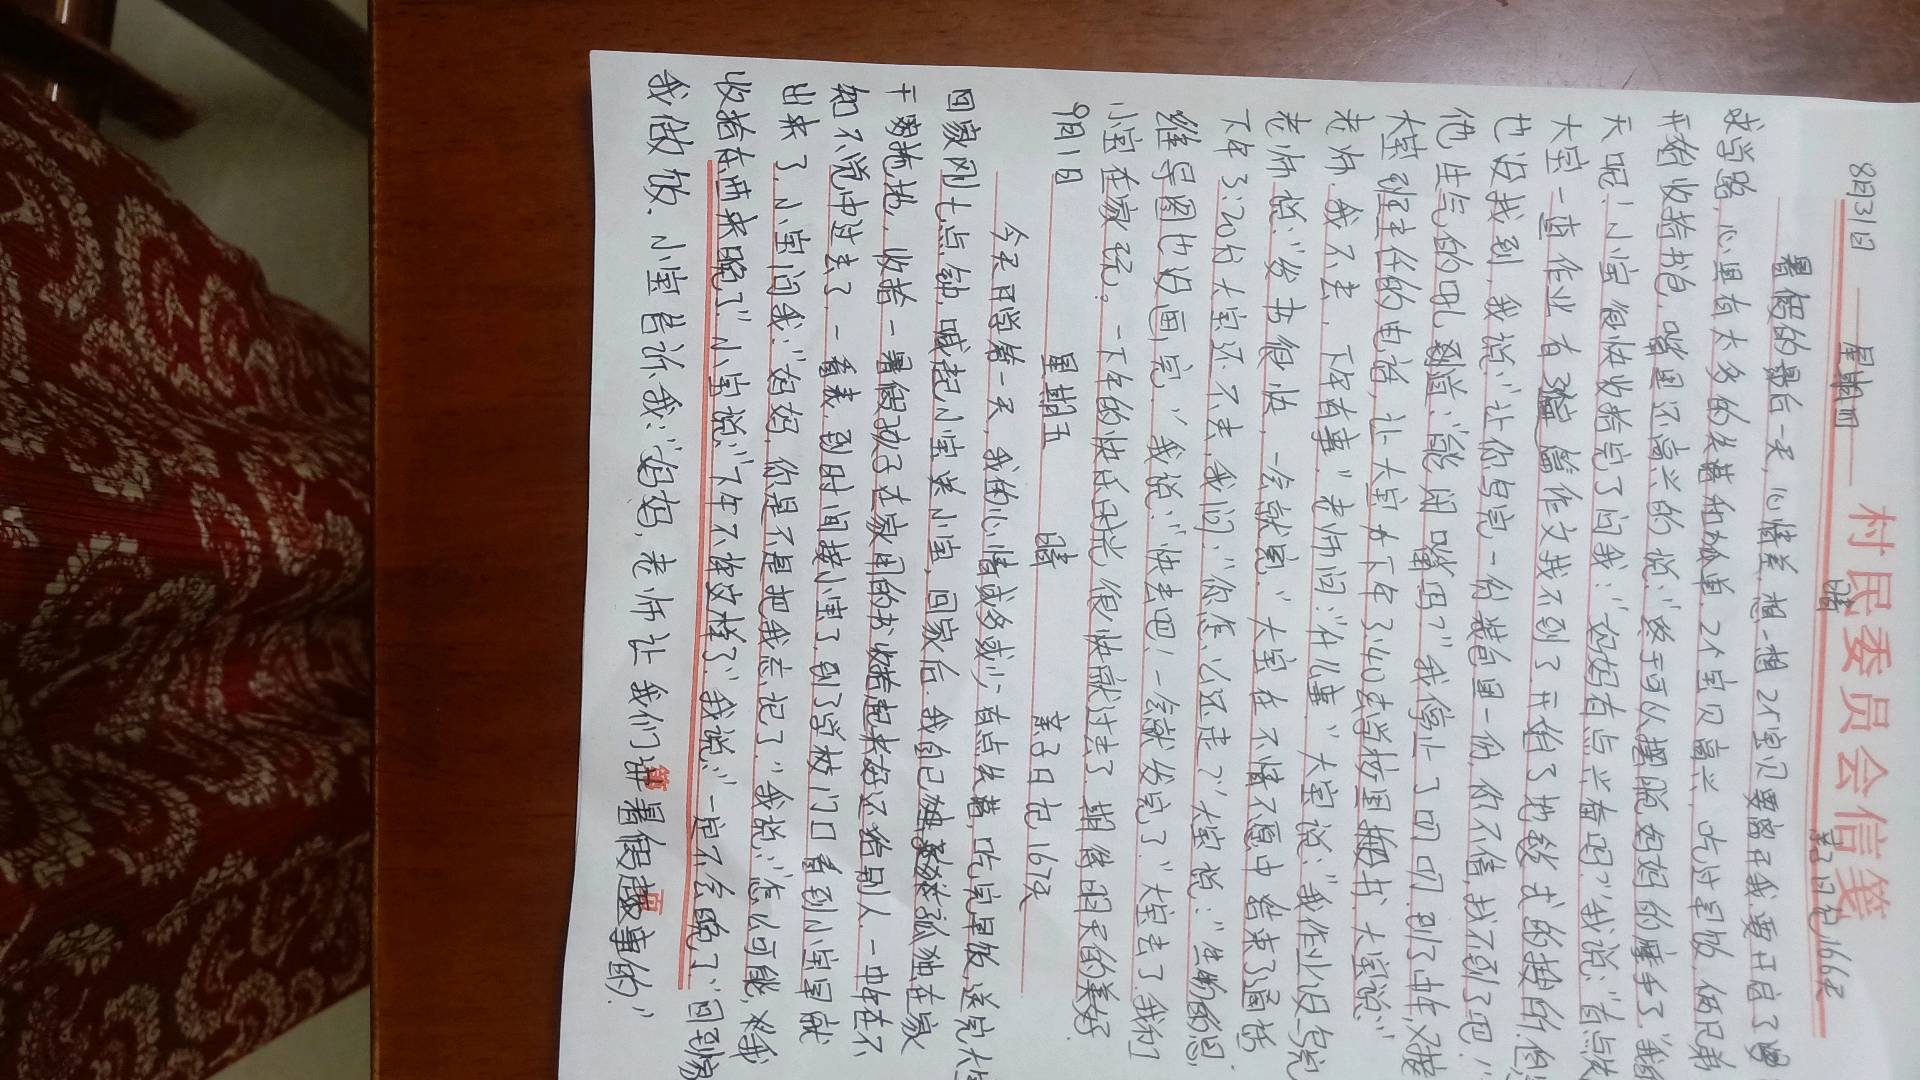 村民委员会信笺
8月31日 星期四 晴 亲子日记166天
暑假的最后一天,心情差,想一想2个宝贝要离开我要开启了
求学路,心里有太多的失落和孤单.2个宝贝高兴,吃过早饭,俩兄弟
开始收拾书包,嘴里还高兴的说:"终于可以摆脱妈妈的魔手了"我
天呢!小宝很快收拾完了问我:"妈妈有点兴奋吗?"我说:"有点失
大宝一直作业有3篇作文找不到了开始了地毯式的搜索,
也没找到,我说:"让你写完一份装包里一份,你不信,找不到了吧!"
他生气的吼到道:"能闭嘴吗?"我停止了叨叨.到了中午又接
大宝班主任的电话,让大宝下午3:40去学校里搬书,大宝说:"
老师,我不去,下午有事"老师问:"什么事"大宝说:"我作业没写完
老师说:"发书很快,一会就完."大宝在不情不愿中结束了通话
下午3:20分大宝还不去,我问:"你怎么还走?"大宝说:"生物的思
维导图也没画完,"我说:"快去吧!一会就发完了."大宝去了.我们
小宝在家玩。一下午的快乐时光,很快就过去了 期待明天的美好
9月1日 星期五 晴 亲子日记167天
今天开学第一天,我的心情或多或少有点失落,吃完早饭送完大宝
回家刚七点钟,喊起小宝送小宝,回家后.我自己独孤独在家
干家拖地,收拾一暑假孩子在家用的书收拾起来好还给别人.一中午在不
知不觉中过去了,一看表,到时间接小宝了,到了学校门口看到小宝早就
出来了,小宝问我:"妈妈,你是不是把我忘记了."我说:"怎么可能,
收拾东西来晚了"小宝说:"下午不许这样了"我说:"一定不会晚了"回到家
我做饭.小宝告诉我:"妈妈,老师让我们讲暑假趣事的."